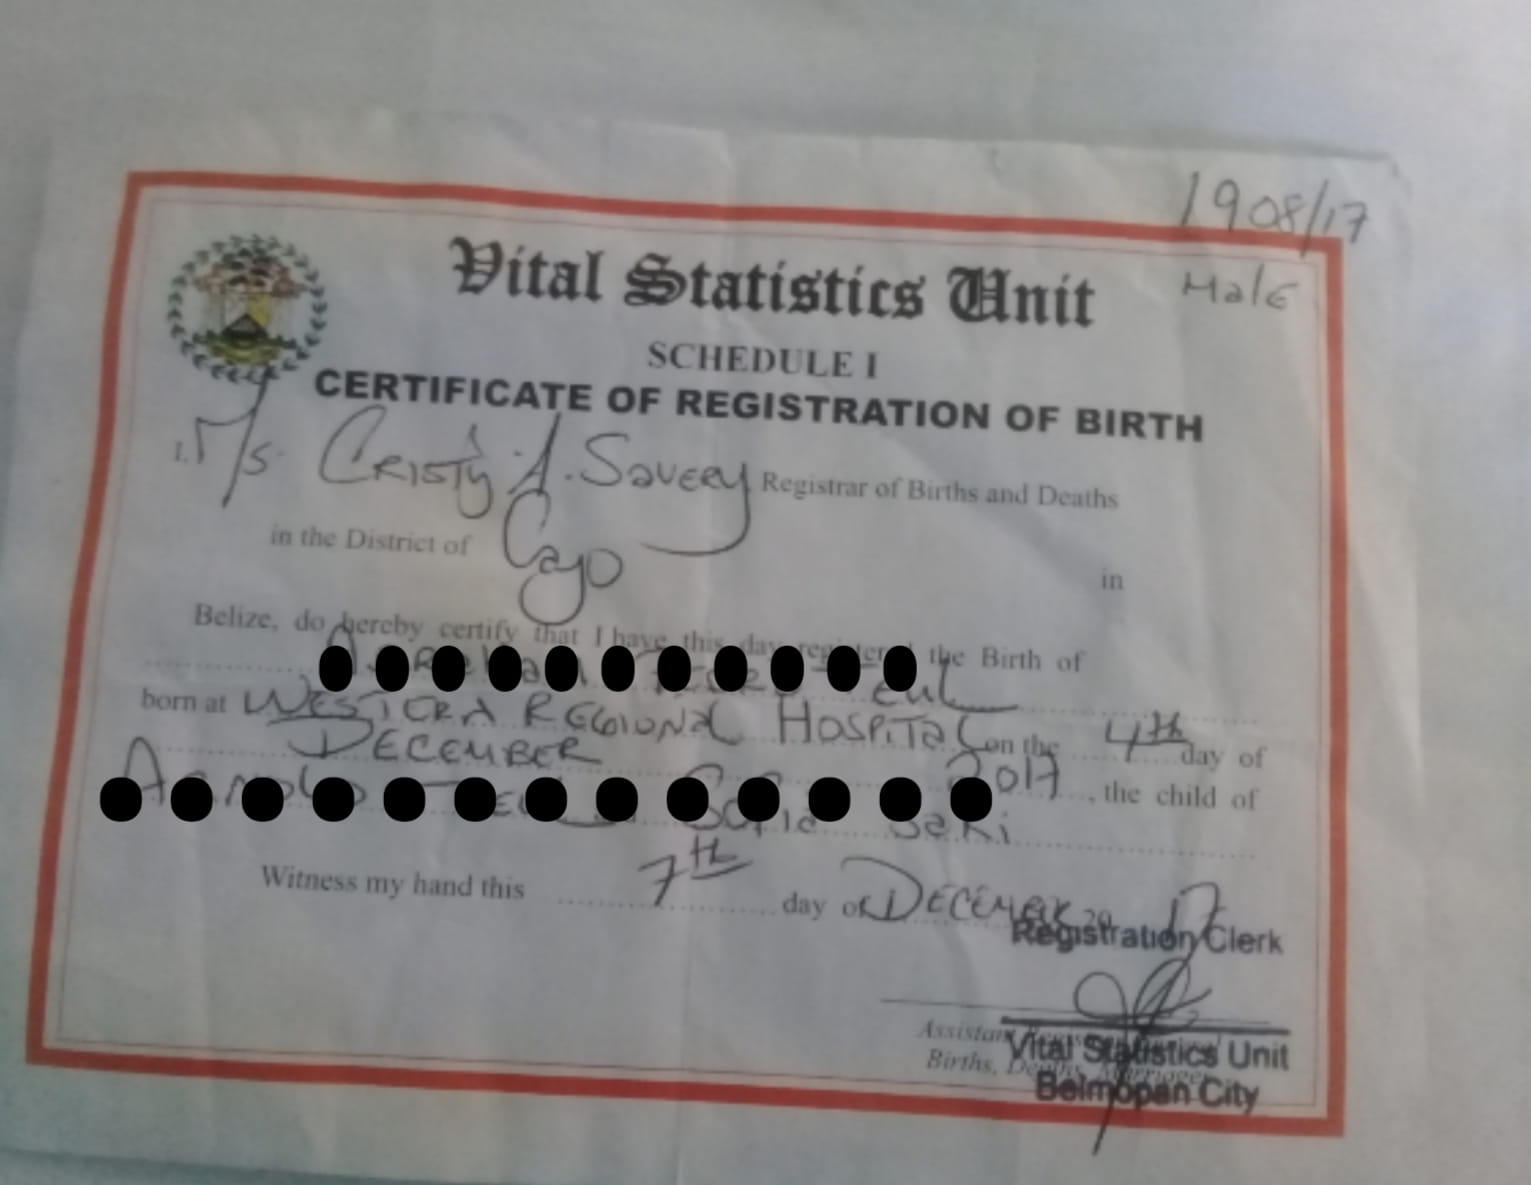 1908/17
Male
Vital Statistics Unit
SCHEDULE I
CERTIFICATE OF REGISTRATION OF BIRTH
I, M/s. Cristy A. Savery Registrar of Births and Deaths
in the District of Cayo in
Belize, do hereby certify that I have this day registered the Birth of
born at Western Regional Hospital on the 4th day of
December 2017, the child of
Witness my hand this 7th day of December 20 17
Registration Clerk
Assistant
Births, Deaths,
Vital Statistics Unit
Belmopan City